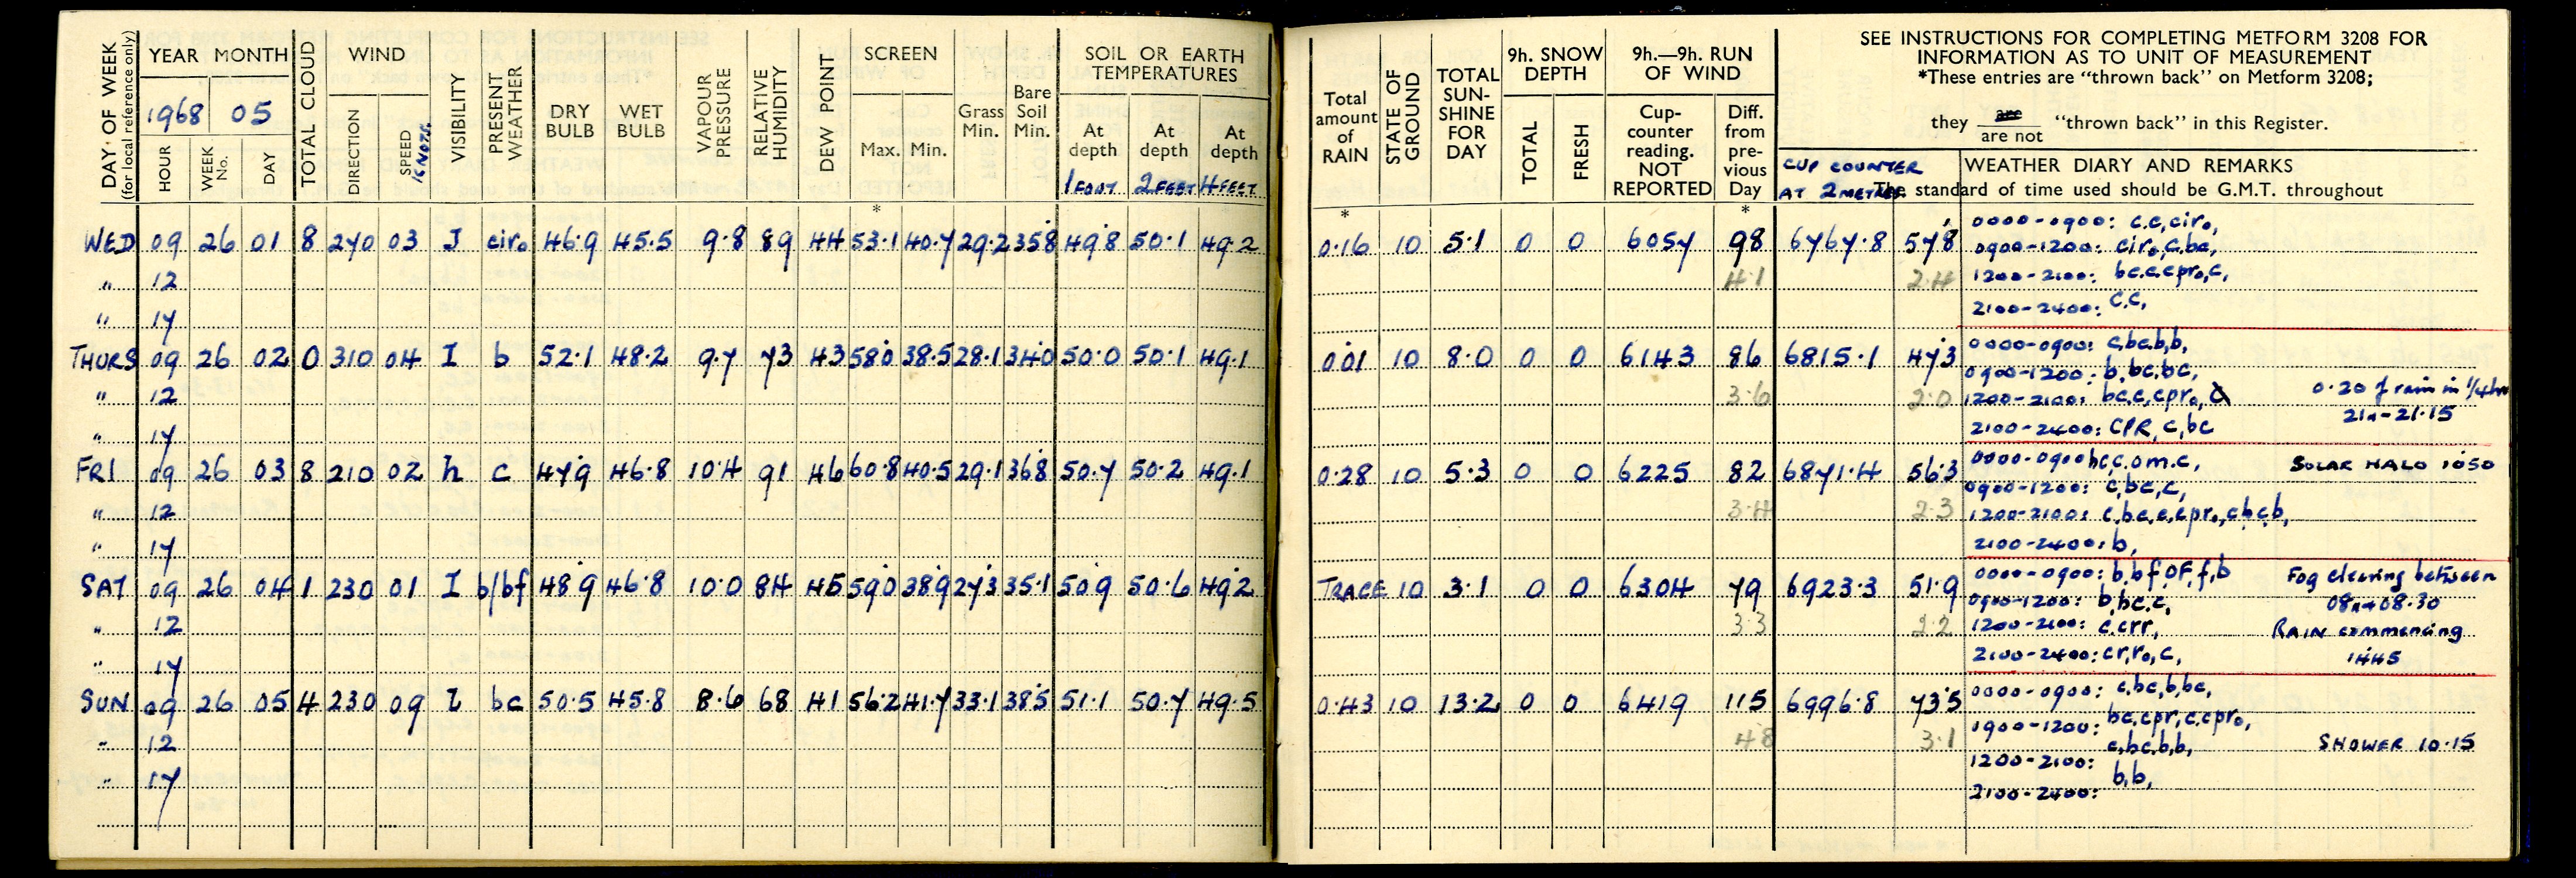 DAY OF WEEK (for local reference only)
YEAR MONTH
1968 05
HOUR WEEK No. DAY
TOTAL CLOUD
WIND
DIRECTION SPEED KNOTS
VISIBILITY
PRESENT WEATHER
DRY BULB
WET BULB
VAPOUR PRESSURE
RELATIVE HUMIDITY
DEW POINT
SCREEN
Max. Min.
Grass Min.
Bare Soil Min.
SOIL OR EARTH TEMPERATURES
At depth 1 FOOT
At depth 2 FEET
At depth 4 FEET
*
WED 09 26 01 8 270 03 I ciro 46.9 45.5 9.8 89 44 53.1 40.7 29.2 35.8 49.8 50.1 49.2
" 12
" 17
THURS 09 26 02 0 310 04 I b 52.1 48.2 9.7 73 43 58.0 38.5 28.1 34.0 50.0 50.1 49.1
" 12
" 17
FRI 09 26 03 8 210 02 h c 47.9 46.8 10.4 91 46 60.8 40.5 29.1 36.8 50.7 50.2 49.1
" 12
" 17
SAT 09 26 04 1 230 01 I b/bf 48.9 46.8 10.0 84 45 59.0 38.9 27.3 35.1 50.9 50.6 49.2
" 12
" 17
SUN 09 26 05 4 230 09 I bc 50.5 45.8 8.6 68 41 56.2 41.7 33.1 38.5 51.1 50.7 49.5
" 12
" 17
Total amount of RAIN
STATE OF GROUND
TOTAL SUN-SHINE FOR DAY
9h. SNOW DEPTH
TOTAL FRESH
9h.—9h. RUN OF WIND
Cup-counter reading. NOT REPORTED
Diff. from pre-vious Day
SEE INSTRUCTIONS FOR COMPLETING METFORM 3208 FOR
INFORMATION AS TO UNIT OF MEASUREMENT
*These entries are "thrown back" on Metform 3208;
they are / are not "thrown back" in this Register.
CUP COUNTER
AT 2 METRES
WEATHER DIARY AND REMARKS
The standard of time used should be G.M.T. throughout
* *
0.16 10 5.1 0 0 6057 98 6767.8 57.8
0000-0900: c,c,ciro,
0900-1200: ciro,c,bc,
4.1 2.4 1200-2100: bc,c,cpro,c,
2100-2400: c,c,
0.01 10 8.0 0 0 6143 86 6815.1 47.3
0000-0900: c,bc,b,b,
0900-1200: b,bc,bc,
3.6 2.0 1200-2100: bc,c,cpro, 0.20 of rain in 1/4 hr
2100-2400: CPR, c, bc 21..-21.15
0.28 10 5.3 0 0 6225 82 6871.4 56.3
0000-0900 bc,c.o.m.c, SOLAR HALO 1050
0900-1200: c,bc,c,
3.4 2.3 1200-2100: c,bc,c,cpro,cbcb,
2100-2400: b,
TRACE 10 3.1 0 0 6304 79 6923.3 51.9
0000-0900: b,bf,OF,f,b Fog clearing between
0900-1200: b,bc,c, 08..-08.30
3.3 2.2 1200-2100: c,crr, RAIN commencing
2100-2400: cr,ro,c, 1445
0.43 10 13.2 0 0 6419 115 6996.8 73.5
0000-0900: c,bc,b,bc,
0900-1200: bc,cpr,c,cpro,
4.8 3.1 c,bc,b,b, SHOWER 10.15
1200-2100:
b,b,
2100-2400: